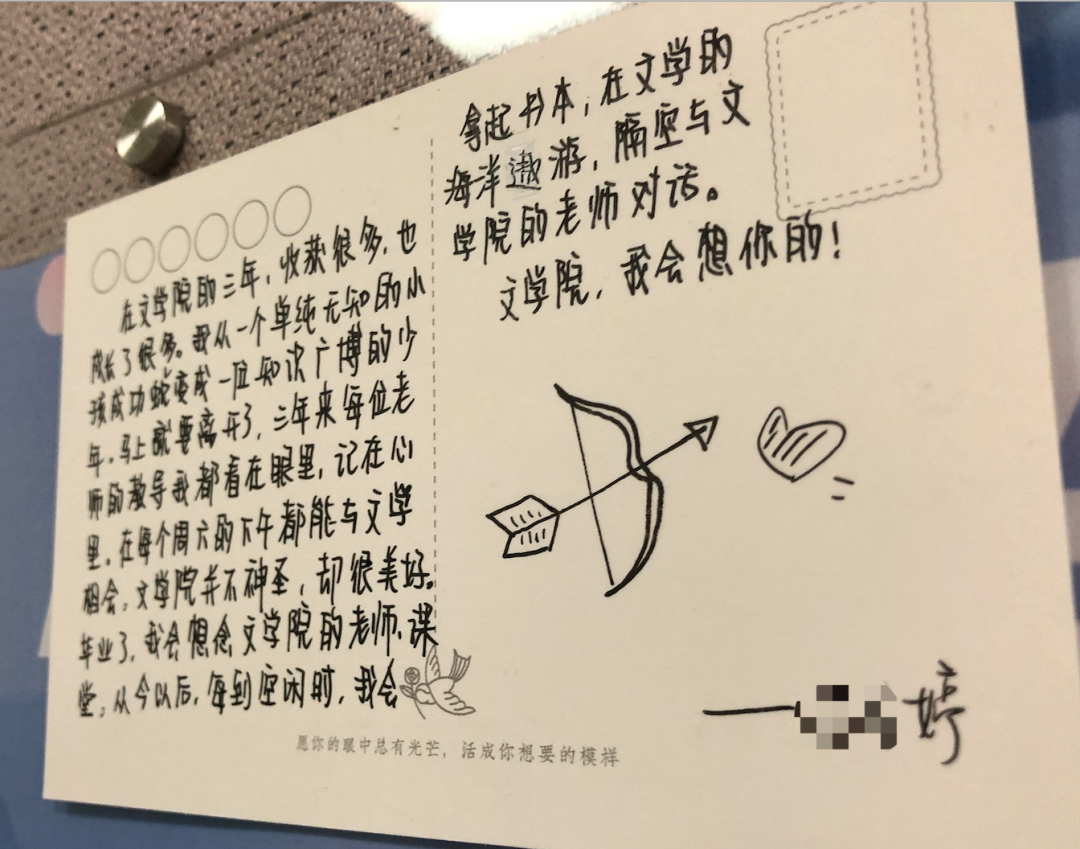 在文学院的三年，收获很多，也
成长了很多。我从一个单纯无知的小
孩成功蜕变成一位知识广博的少
年。马上就要离开了，三年来每位老
师的教导我都看在眼里，记在心
里。在每个周六的下午都能与文学
相会。文学院并不神圣，却很美好。
毕业了，我会想念文学院的老师、课
堂。从今以后，每到空闲时，我会
拿起书本，在文学的
海洋遨游，隔空与文
学院的老师对话。
文学院，我会想你的！
——婷
愿你的眼中总有光芒，活成你想要的模样